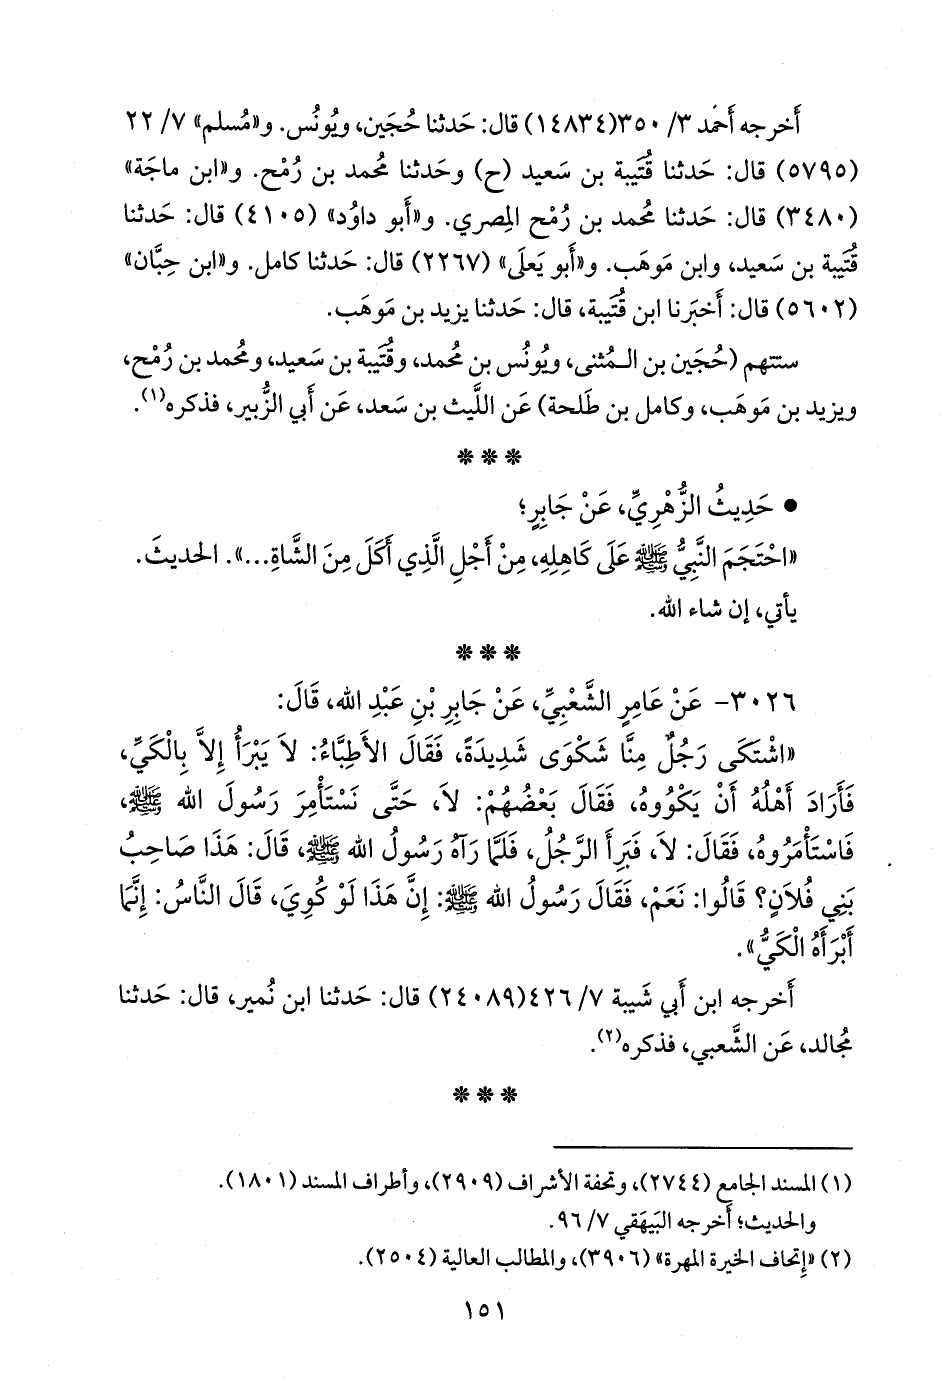 أَخرجه أَحمد ٣/ ٣٥٠(١٤٨٣٤) قال: حَدثنا حُجَين، ويُونُس. و«مُسلم» ٧/ ٢٢
(٥٧٩٥) قال: حَدثنا قُتَيبة بن سَعيد (ح) وحَدثنا مُحمد بن رُمْح. و«ابن ماجَة»
(٣٤٨٠) قال: حَدثنا مُحمد بن رُمْح المِصري. و«أَبو داوُد» (٤١٠٥) قال: حَدثنا
قُتَيبة بن سَعيد، وابن مَوهَب. و«أَبو يَعلَى» (٢٢٦٧) قال: حَدثنا كامل. و«ابن حِبَّان»
(٥٦٠٢) قال: أَخبَرنا ابن قُتَيبة، قال: حَدثنا يزيد بن مَوهَب.
ستتهم (حُجَين بن المُثنى، ويُونُس بن مُحمد، وقُتَيبة بن سَعيد، ومُحمد بن رُمْح،
ويزيد بن مَوهَب، وكامل بن طَلحة) عَن اللَّيث بن سَعد، عَن أَبي الزُّبير، فذكره(١).
* * *
• حَدِيثُ الزُّهْرِيِّ، عَنْ جَابِرٍ؛
«احْتَجَمَ النَّبِيُّ ﷺ عَلَى كَاهِلِهِ، مِنْ أَجْلِ الَّذِي أَكَلَ مِنَ الشَّاةِ...». الحديثَ.
يأتي، إن شاء الله.
* * *
٣٠٢٦- عَنْ عَامِرٍ الشَّعْبِيِّ، عَنْ جَابِرِ بْنِ عَبْدِ الله، قَالَ:
«اشْتَكَى رَجُلٌ مِنَّا شَكْوَى شَدِيدَةً، فَقَالَ الأَطِبَّاءُ: لاَ يَبْرَأُ إِلاَّ بِالْكَيِّ،
فَأَرَادَ أَهْلُهُ أَنْ يَكْوُوهُ، فَقَالَ بَعْضُهُمْ: لاَ، حَتَّى نَسْتَأْمِرَ رَسُولَ الله ﷺ،
فَاسْتَأْمَرُوهُ، فَقَالَ: لاَ، فَبَرِأَ الرَّجُلُ، فَلَمَّا رَآهُ رَسُولُ الله ﷺ، قَالَ: هَذَا صَاحِبُ
بَنِي فُلاَنٍ؟ قَالُوا: نَعَمْ، فَقَالَ رَسُولُ الله ﷺ: إِنَّ هَذَا لَوْ كُوِيَ، قَالَ النَّاسُ: إِنَّمَا
أَبْرَأَهُ الْكَيُّ».
أَخرجه ابن أَبي شَيبة ٧/ ٤٢٦(٢٤٠٨٩) قال: حَدثنا ابن نُمير، قال: حَدثنا
مُجالد، عَن الشَّعبي، فذكره(٢).
* * *
(١) المسند الجامع (٢٧٤٤)، وتحفة الأشراف (٢٩٠٩)، وأطراف المسند (١٨٠١).
والحديث؛ أَخرجه البَيهَقي ٧/ ٩٦.
(٢) «إتحاف الخيرة المهرة» (٣٩٠٦)، والمطالب العالية (٢٥٠٤).
١٥١